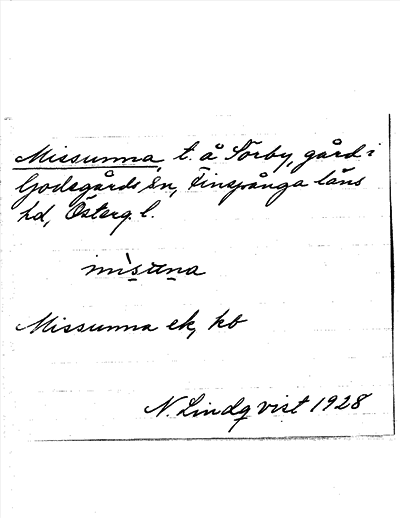 Missunna, t. å Sörby, gård i
Godegårds sn, Finspånga läns
hd, Österg. l.
Missunna ek, kb
N. Lindqvist 1928